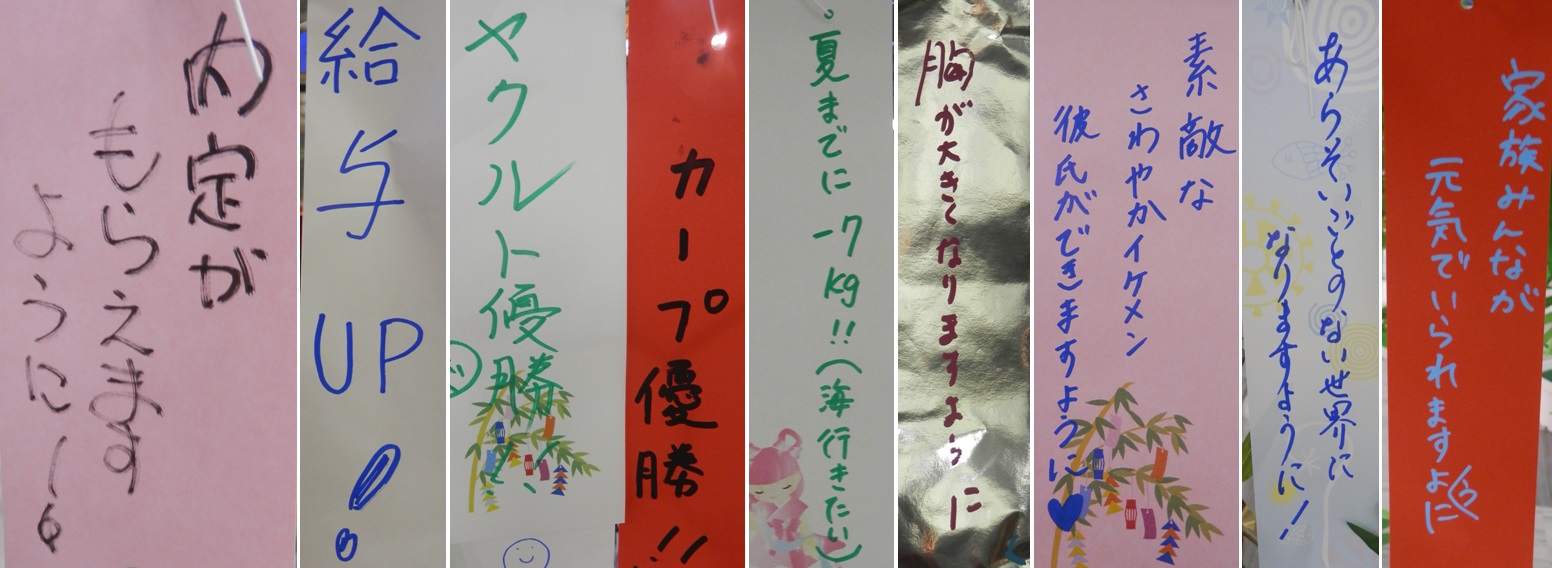 内定が
もらえます
ように！
給与UP！
ヤクルト優勝!!
カープ優勝!!
。夏までに－7kg!!（海行きたい）
胸が大きくなりますように
素敵な
さわやかイケメン
彼氏ができますように
あらそいごとのない世界に
なりますように！
家族みんなが
元気でいられますように